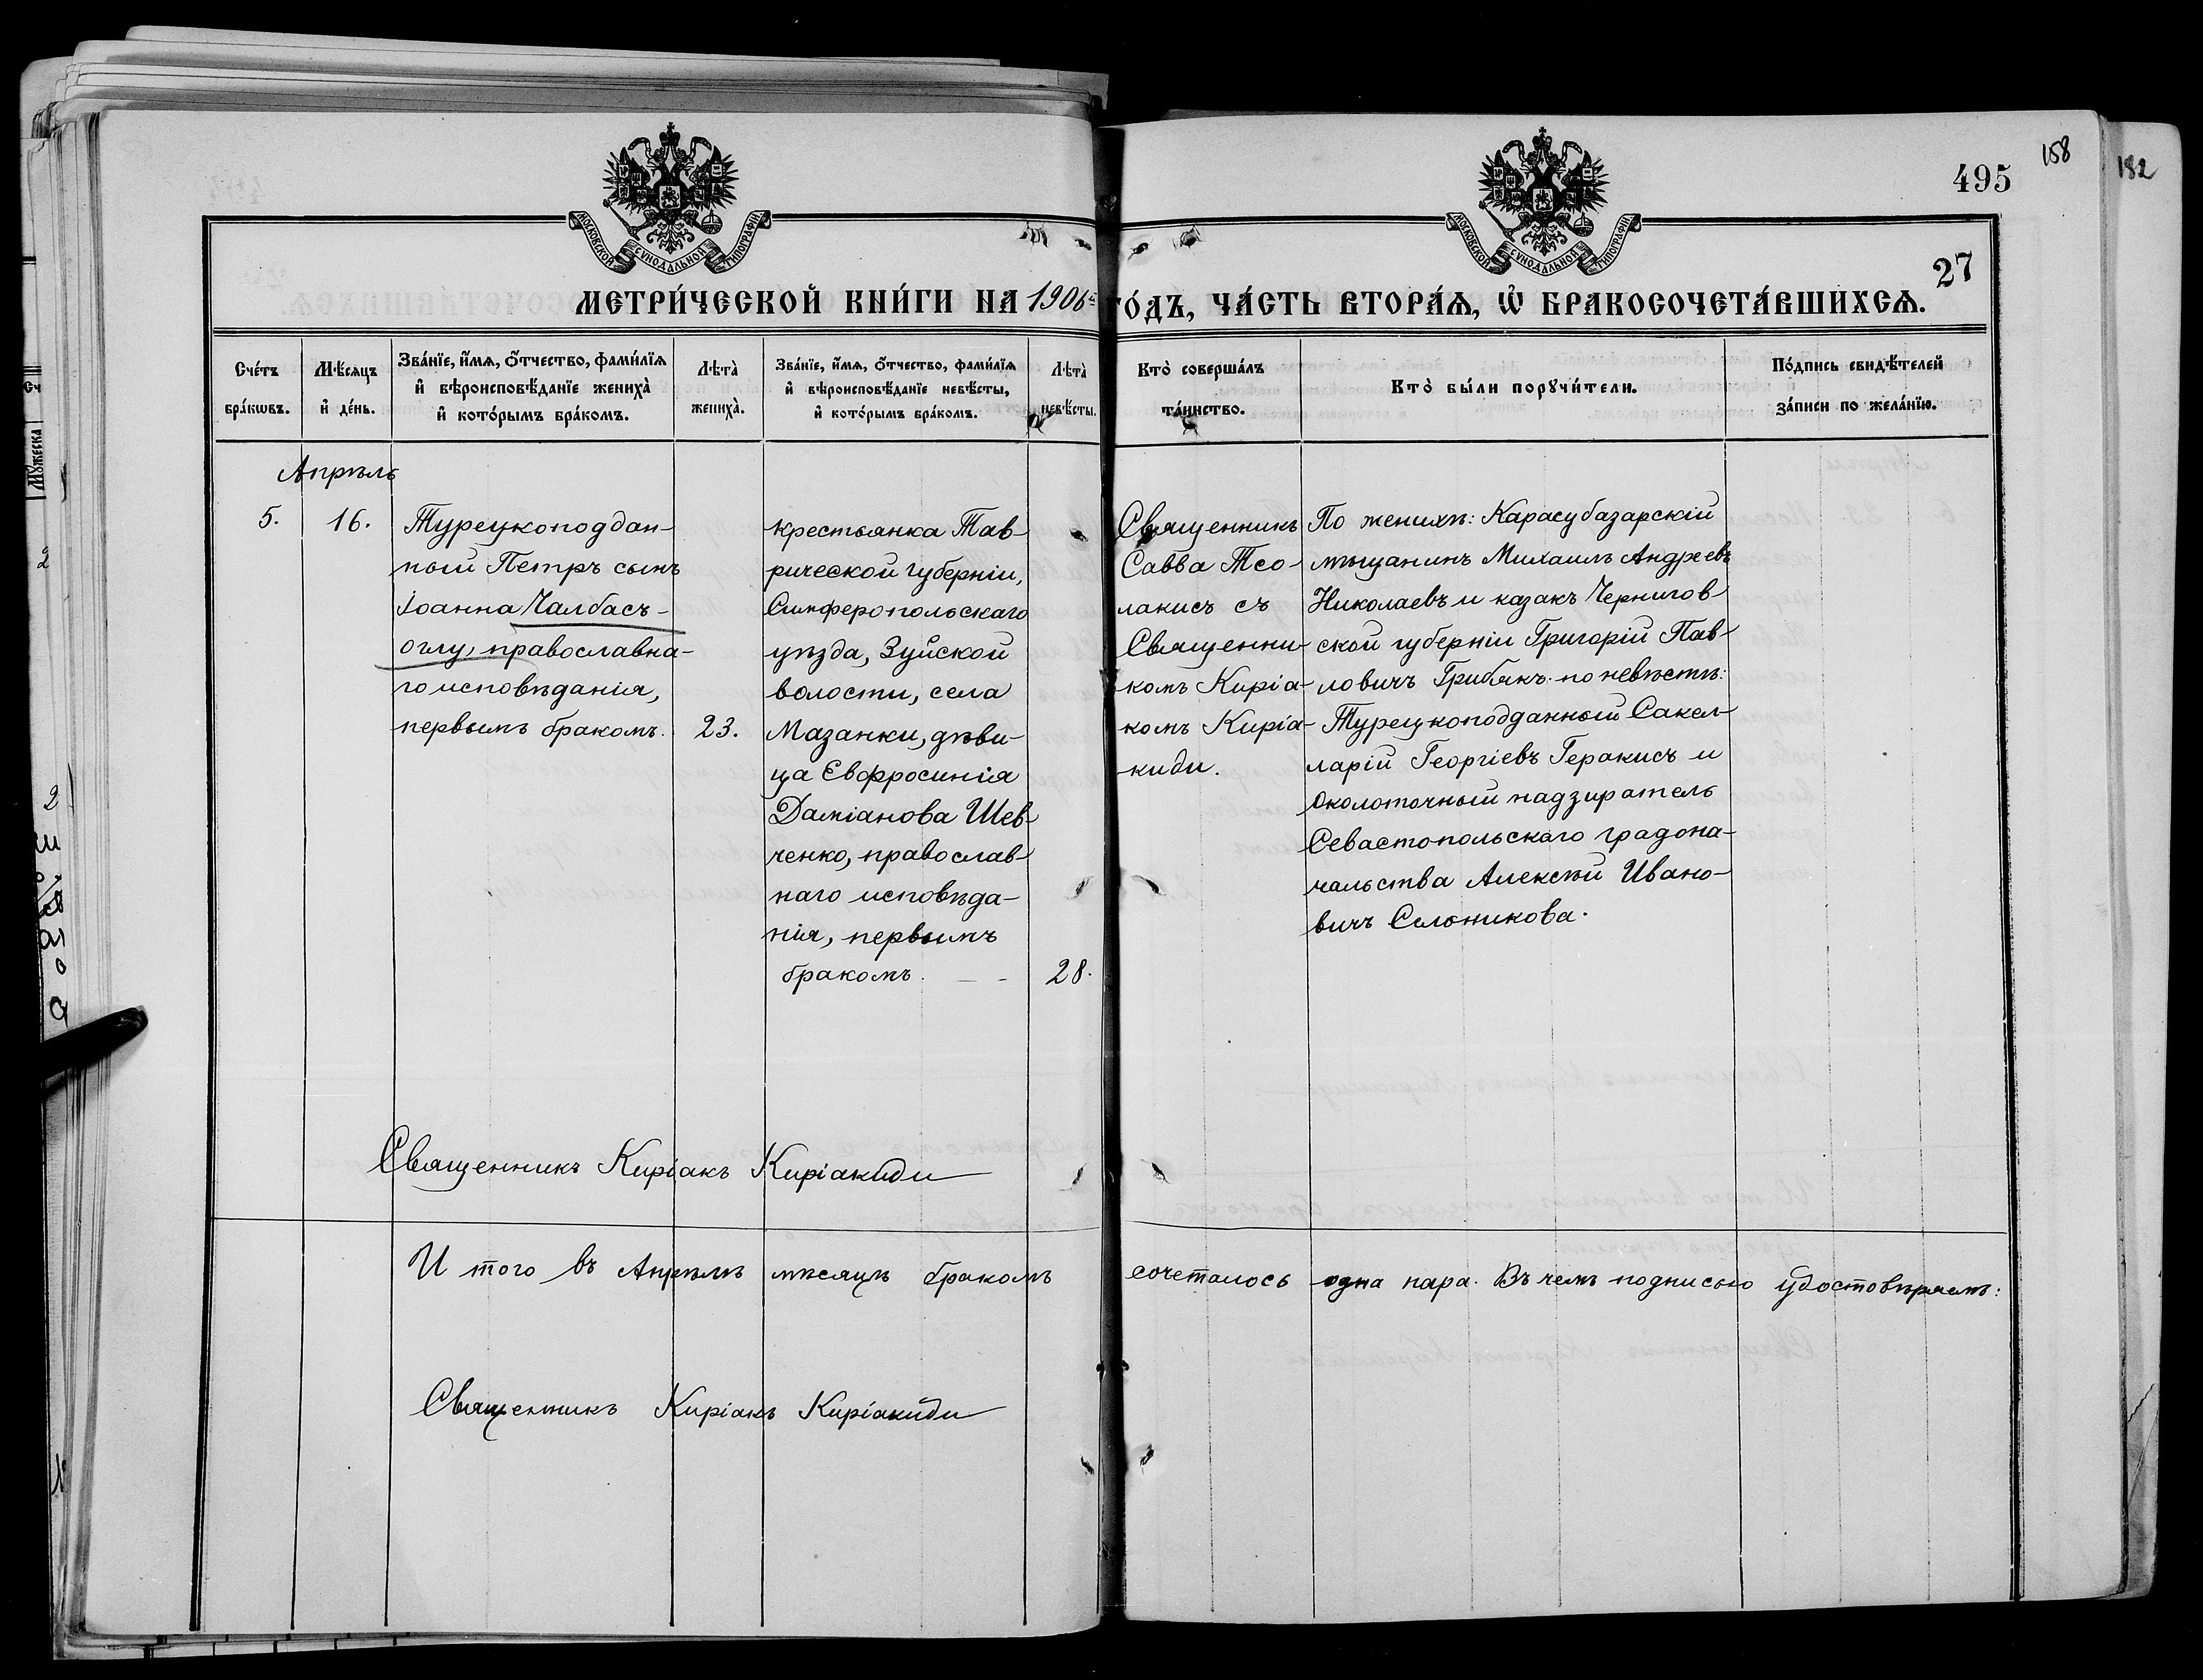 158
182
495
27
МОСКОВСКОЙ СѴНОДАЛЬНОЙ ТИПОГРАФІИ
МОСКОВСКОЙ СѴНОДАЛЬНОЙ ТИПОГРАФІИ
МЕТРИ́ЧЕСКОЙ КНИ́ГИ НА 1906й ГО́ДЪ, ЧА́СТЬ ВТОРА́Ѧ, Ѽ БРАКОСОЧЕТА́ВШИХСѦ.
Сче́тъ бра́кѡвъ.
Мѣ́сяцъ и҆ де́нь.
Зва́нїе, и҆́мѧ, о҆́тчество, фами́лїѧ и҆ вѣроисповѣ́данїе жениха̀ и҆ кото́рымъ бра́комъ.
Лѣта̀ жениха̀.
Зва́нїе, и҆́мѧ, о҆́тчество, фами́лїѧ и҆ вѣроисповѣ́данїе невѣ́сты, и҆ кото́рымъ бра́комъ.
Лѣта̀ невѣ́сты.
Кто̀ соверша́лъ та́инство.
Кто̀ бы́ли порꙋчи́тели.
По́дпись свидѣ́телей за́писи по жела́нїю.
Апрѣль
5.
16.
Турецкоподдан-
ный Петръ сынъ
Іоанна Чалбасъ-
оглу, православна-
го исповѣданія,
первымъ бракомъ.
23.
крестьянка Тав-
рической губерніи,
Симферопольскаго
уѣзда, Зуйской
волости, села
Мазанки, дѣви-
ца Евфросинія
Даміанова Шев-
ченко, православ-
наго исповѣда-
нія, первымъ
бракомъ.
28.
Священникъ
Савва Тсо-
лакисъ съ
Священни-
комъ Киріа-
комъ Киріа-
киди.
По женихѣ: Карасубазарскій
мѣщанинъ Михаилъ Андреевъ
Николаевъ и казакъ Чернигов
ской губерніи Григорій Пав-
ловичъ Грибякъ. по невѣстѣ:
Турецкоподданный Сакел-
ларій Георгіевъ Геракисъ и
околоточный надзиратель
Севастопольскаго градона-
чальства Алексѣй Ивано-
вичъ Селоникова.
Священникъ Киріакъ Киріакиди
И того въ Апрѣлѣ мѣсяцѣ бракомъ сочеталось одна пара. Въ чемъ подписью удостовѣряемъ:
Священникъ Киріакъ Киріакиди